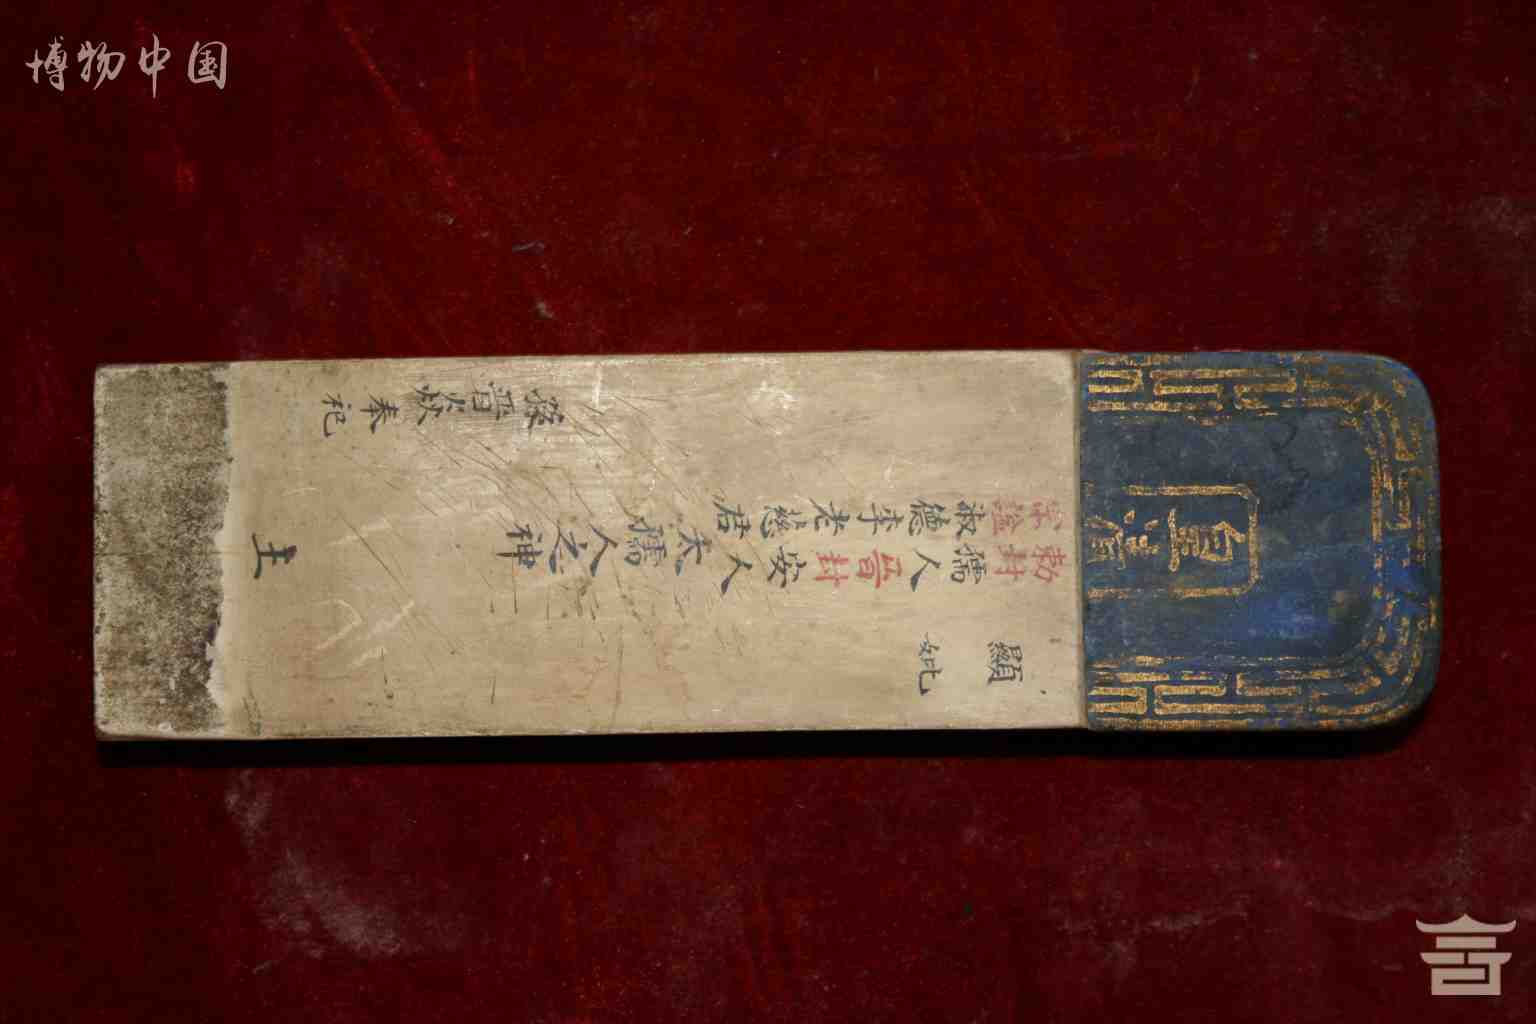 博物中国
皇清
顯妣
勅封孺人晉封安人
家諡淑德李老慈君
太孺人之神主
孫晉奉祀